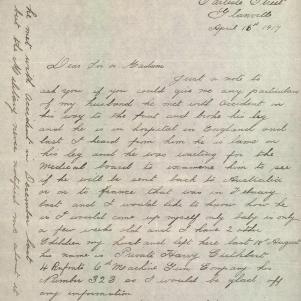 Carlisle Street
Glanville
April 16th 1917
Dear Sir or Madam
Just a note to
ask you if you could give me any particulars
of my husband he met with accident on
his way to the front and broke his leg
and he is in hospital in England and
last I heard from him he is lame in
his leg and he was waiting for the
Medical board to examine him to see
if he will be sent back to Australia
or on to france that was in February
last and I would like to know how he
is I would come up myself only baby is only
a few weeks old and I have 2 other
Children my husband left here last 12th August
his name is Private Harry Cuthbert
4 Refnts 6th Machine Gun Company his
Number is 323 so I would be glad off
any information
he met with accident December last
but the Military never notified me about it